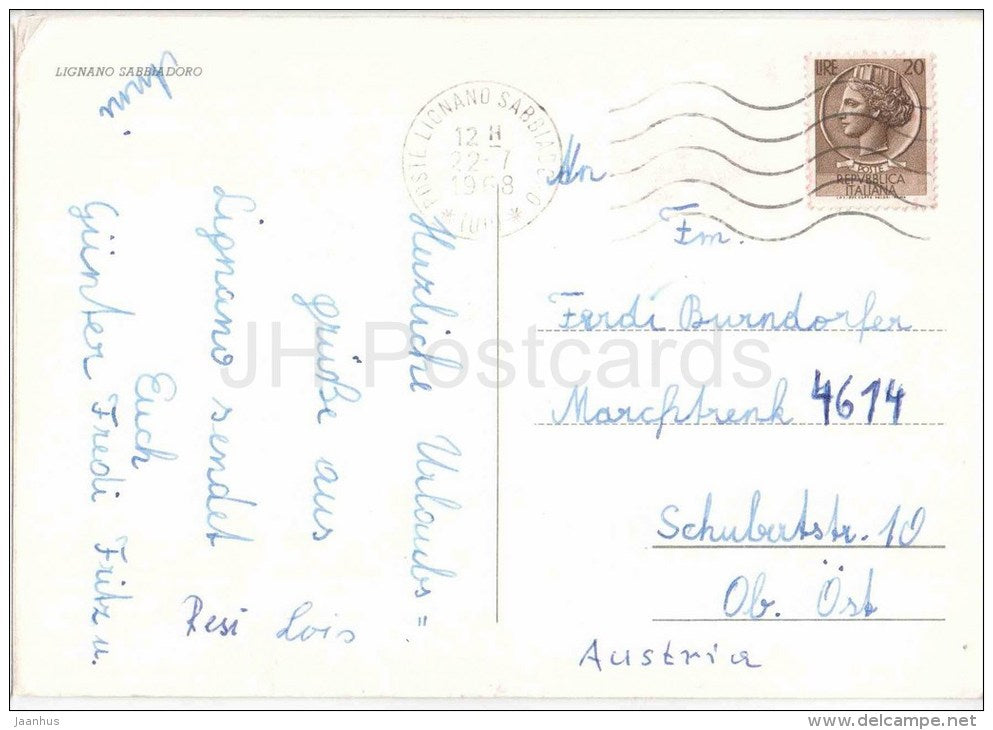 LIGNANO SABBIADORO
POSTE LIGNANO SABBIADORO
12 H
22-7
1968
(UD)
LIRE 20
POSTE
REPVBBLICA
ITALIANA
Herzliche Urlaubs=
grüße aus
Lignano sendet
Euch
Günter Fredi Fritz u.
Anni.
Resi Lois
An
Fm.
Ferdi Burndorfer
Marchtrenk 4614
Schubertstr. 10
Ob. Öst
Austria
JH Postcards
jaanhus
www.delcampe.net